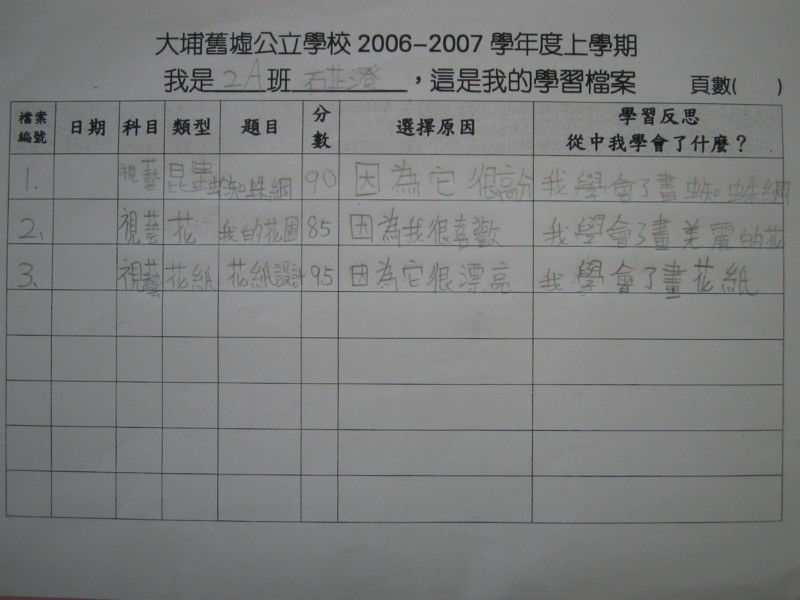 大埔舊墟公立學校 2006-2007 學年度上學期
我是 2A 班 石芷澄 ，這是我的學習檔案 頁數( )
檔案編號 日期 科目 類型 題目 分數 選擇原因 學習反思 從中我學會了什麼？
1. 視藝 昆蟲 蜘蛛網 90 因為它很高分 我學會了畫蜘蛛網
2. 視藝 花 我的花園 85 因為我很喜歡 我學會了畫美麗的花
3. 視藝 花紙 花紙設計 95 因為它很漂亮 我學會了畫花紙